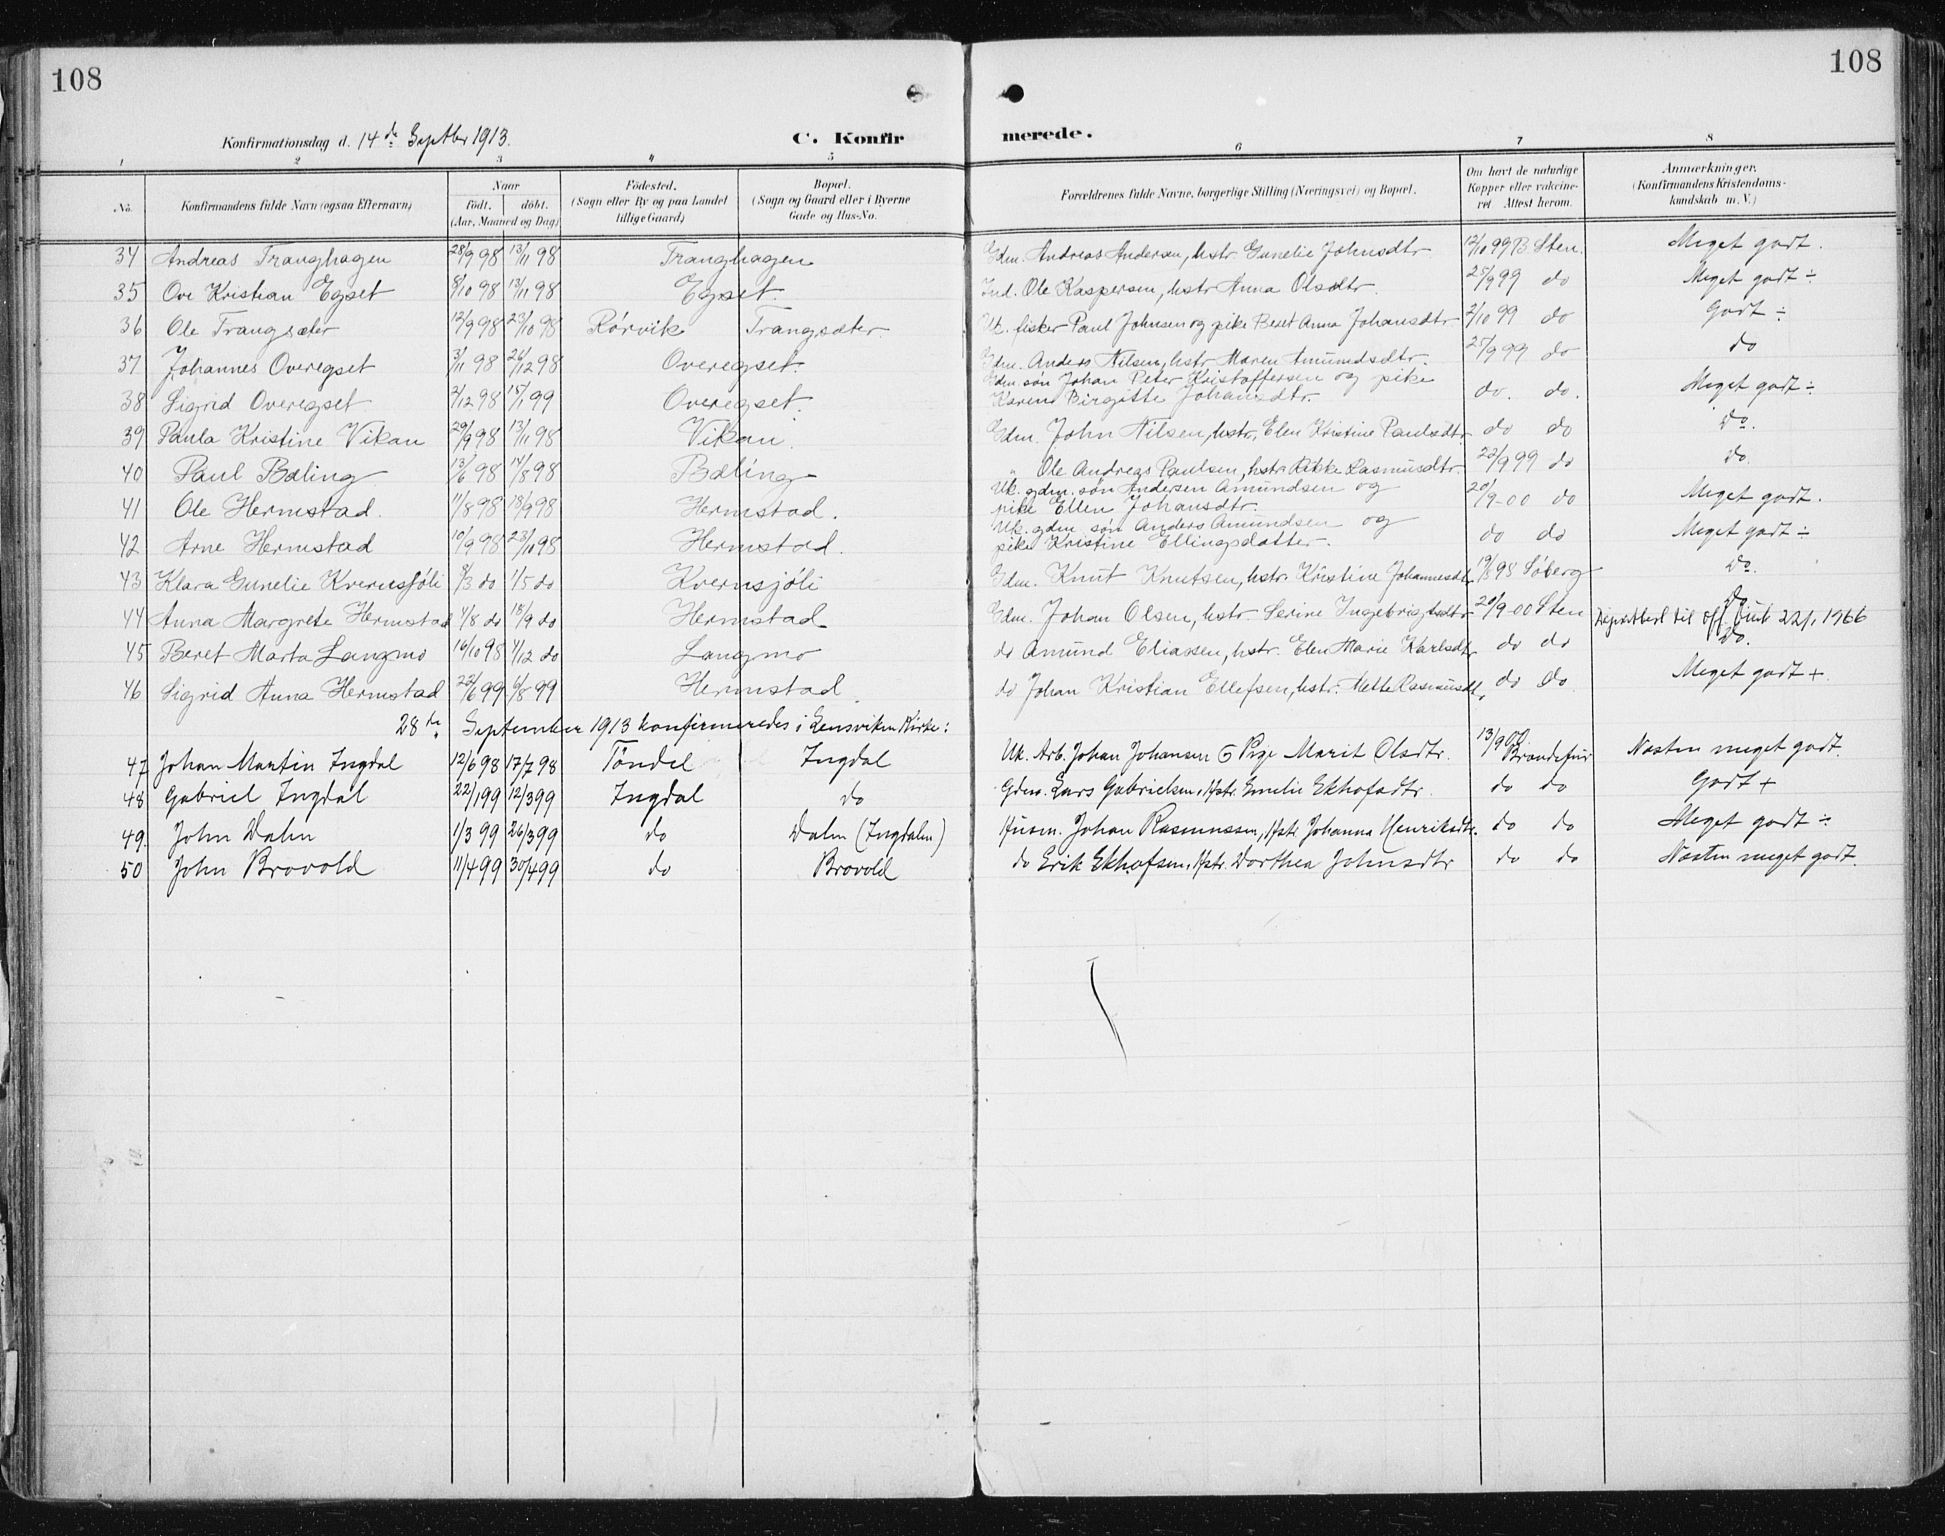 108
108
Konfirmationsdag d. 14de Septbr 1913.
C. Konfirmerede.
1 2 3 4 5 6 7 8
No. | Konfirmandens fulde Navn (ogsaa Efternavn) | Naar født. døbt. (Aar, Maaned og Dag) | Fødested. (Sogn eller By og paa Landet tillige Gaard) | Bopæl. (Sogn og Gaard eller i Byerne Gade og Hus-No. | Forældrenes fulde Navne, borgerlige Stilling (Næringsvei) og Bopæl. | Om havt de naturlige Kopper eller vakcineret. Attest herom. | Anmærkninger. (Konfirmandens Kristendomskundskab m. V.)
34 Andreas Tranghagen 28/9 98 13/11 98 Tranghagen Gdm. Andreas Andersen, hstr. Gunelie Johnsdtr 12/10 99 B. Sten. Meget godt.
35 Ove Kristian Egset 8/10 98 13/11 98 Egset. Ind. Ole Kaspersen, hstr Anna Olsdtr. 25/9 99 do Meget godt ÷
36 Ole Trangsæter 12/9 98 23/10 98 Rørvik Trangsæter Uk. fisker Paul Johnsen og pike Beret Anna Johansdtr 2/10 99 do Godt ÷
37 Johannes Overegset 3/11 98 26/12 98 Overegset. Gdm. Anders Nilsen, hstr. Maren Amundsdtr. 25/9 99 do do
38 Sigrid Overegset 2/12 98 15/1 99 Overegset. Gdm. søn Johan Peter Kristoffersen og pike
Karen Birgitte Johansdtr. do. do. Meget godt ÷
39 Paula Kristine Vikan 29/9 98 13/11 98 Vikan. Gdm. John Nilsen, hstr. Elen Kristine Paulsdtr. do do Do.
40 Paul Bæling 13/6 98 14/8 98 Bæling " Ole Andreas Paulsen, hstr. Rikke Rasmusdtr. 22/9 99 do do.
41 Ole Hermstad. 11/8 98 18/9 98 Hermstad. Uk. gdm. søn Andersen Amundsen og
pike Ellen Johansdtr. 20/9-00 do Meget godt.
42 Arne Hermstad 10/9 98 23/10 98 Hermstad. Uk. gdm. søn Anders Amundsen og
pike Kristine Ellingsdatter. do do Meget godt ÷
43 Klara Gunelie Kvernsjøli 8/3 do 1/5 do Kvernsjøli Gdm. Knut Knutsen, hstr. Kristine Johannesdtr. 19/8 98 Søberg Do.
44 Anna Margrete Hermstad 4/8 do 18/9 do Hermstad Gdm. Johan Olsen, hstr. Serine Ingebrigtsdtr 20/9-00 Sten Do.
til off. bruk 22/1 1966
45 Beret Marta Langmo 16/10 98 4/12 do Langmo do Amund Eliassen, hstr. Elen Marie Karlsdtr do do Do.
46 Sigrid Anna Hermstad 22/6 99 6/8 99 Hermstad do Johan Kristian Ellefsen, hstr. Mette Rasmusdtr, do do Meget godt +.
28de September 1913 konfirmeredes i Lensviken Kirke:
47 Johan Martin Ingdal 12/6 98 17/7 98 Tøndel Ingdal Uk. Arb. Johan Johansen & Pige Marit Olsdtr. 13/9 00 Næsten meget godt.
48 Gabriel Ingdal 22/1 99 12/3 99 Ingdal do Gdm. Lars Gabrielsen, Hstr. Emelie Ekhofsdtr. do do Godt +
49. John Dalen 1/3 99 26/3 99 do Dalen (Ingdalen) Husm. Johan Rasmussen, Hstr. Johanna Henriksdtr. do do Meget godt ÷
50 John Brovold 11/4 99 30/4 99 do Brovold do Erik Ekhofsen, Hstr. Dorthea Johnsdtr do do Næsten meget godt.